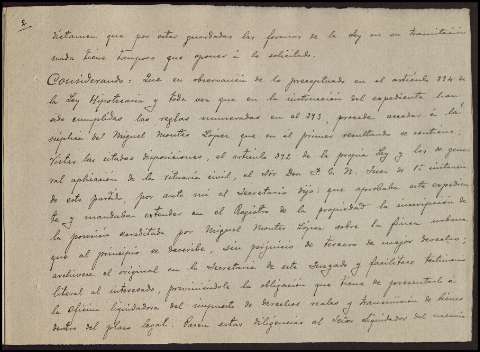 2.
dictamen que por estar guardadas las formas de la Ley en su tramitación
nada tiene tampoco que oponer á lo solicitado.
Considerando: Que en observancia de lo preceptuado en el artículo 394 de
la Ley Hipotecaria y toda vez que en la instrucción del expediente han
sido cumplidas las reglas enumeradas en el 393, procede acceder á la
súplica de Miguel Montes Lopez que en el primer resultando se contiene;
Vistas las citadas disposiciones, el artículo 392 de la propia Ley y los de gene
ral aplicación de la rituaria civil, el Sor Don Juez de 1ª instancia
de este partido, por ante mi el Secretario dijo: que aprobaba este expedien
te y mandaba extender en el Registro de la propiedad la inscripción de
la posesión acreditada por Miguel Montes López sobre la finca urbana,
que al principio se describe, sin perjuicio de tercero de mejor derecho;
archívese el original en la Secretaria de este Juzgado y facilítese testimonio
literal al interesado, previniéndole la obligación que tiene de presentarlo á
la Oficina liquidadora del impuesto de derechos reales y transmisión de bienes
dentro del plazo legal. Pasen estas diligencias al Señor Liquidador del mismo